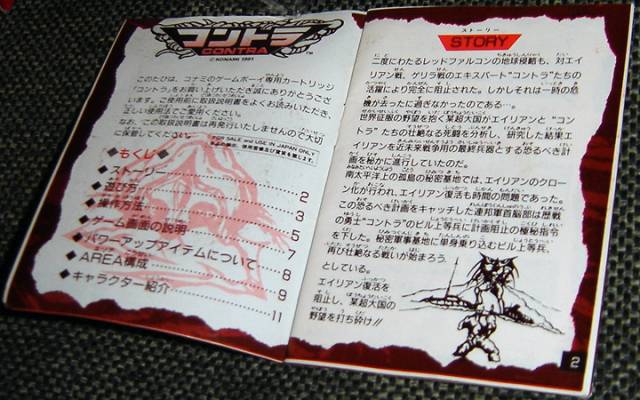 コントラ
CONTRA
© KONAMI 1991
このたびは、コナミのゲームボーイ専用カートリッジ
「コントラ」をお買い上げいただき誠にありがとうござ
います。ご使用前に取扱説明書をよくお読みいただき、
正しい使用法でご愛用ください。
なお、この取扱説明書は再発行いたしませんので大切
に保管してください。
FOR SALE and USE IN JAPAN ONLY
◆もくじ◆
◆ストーリー 2
◆遊び方 3
◆操作方法 5
◆ゲーム画面の説明 7
◆パワーアップアイテムについて 8
◆AREA構成 9
◆キャラクター紹介 11
ストーリー
STORY
二度にわたるレッドファルコンの地球侵略も、対エイ
リアン戦、ゲリラ戦のエキスパート“コントラ”たちの
活躍により完全に阻止された。しかしそれは一時の危
機が去ったに過ぎなかったのである…。
世界征服の野望を抱く某超大国がエイリアンと“コン
トラ”たちの壮絶なる死闘を分析し、研究した結果エ
イリアンを近未来戦争用の最終兵器とする恐るべき計
画を秘かに進行していたのだ。
南太平洋上の孤島の秘密基地では、エイリアンのクロー
ン化が行われ、エイリアン復活も時間の問題であった。
この恐るべき計画をキャッチした連邦軍首脳部は歴戦
の勇士“コントラ”のビル上等兵に計画阻止の極秘指令
を下した。秘密軍事基地に単身乗り込むビル上等兵。
再び壮絶なる戦いが始まろう
としている。
エイリアン復活を
阻止し、某超大国の
野望を打ち砕け!!
2